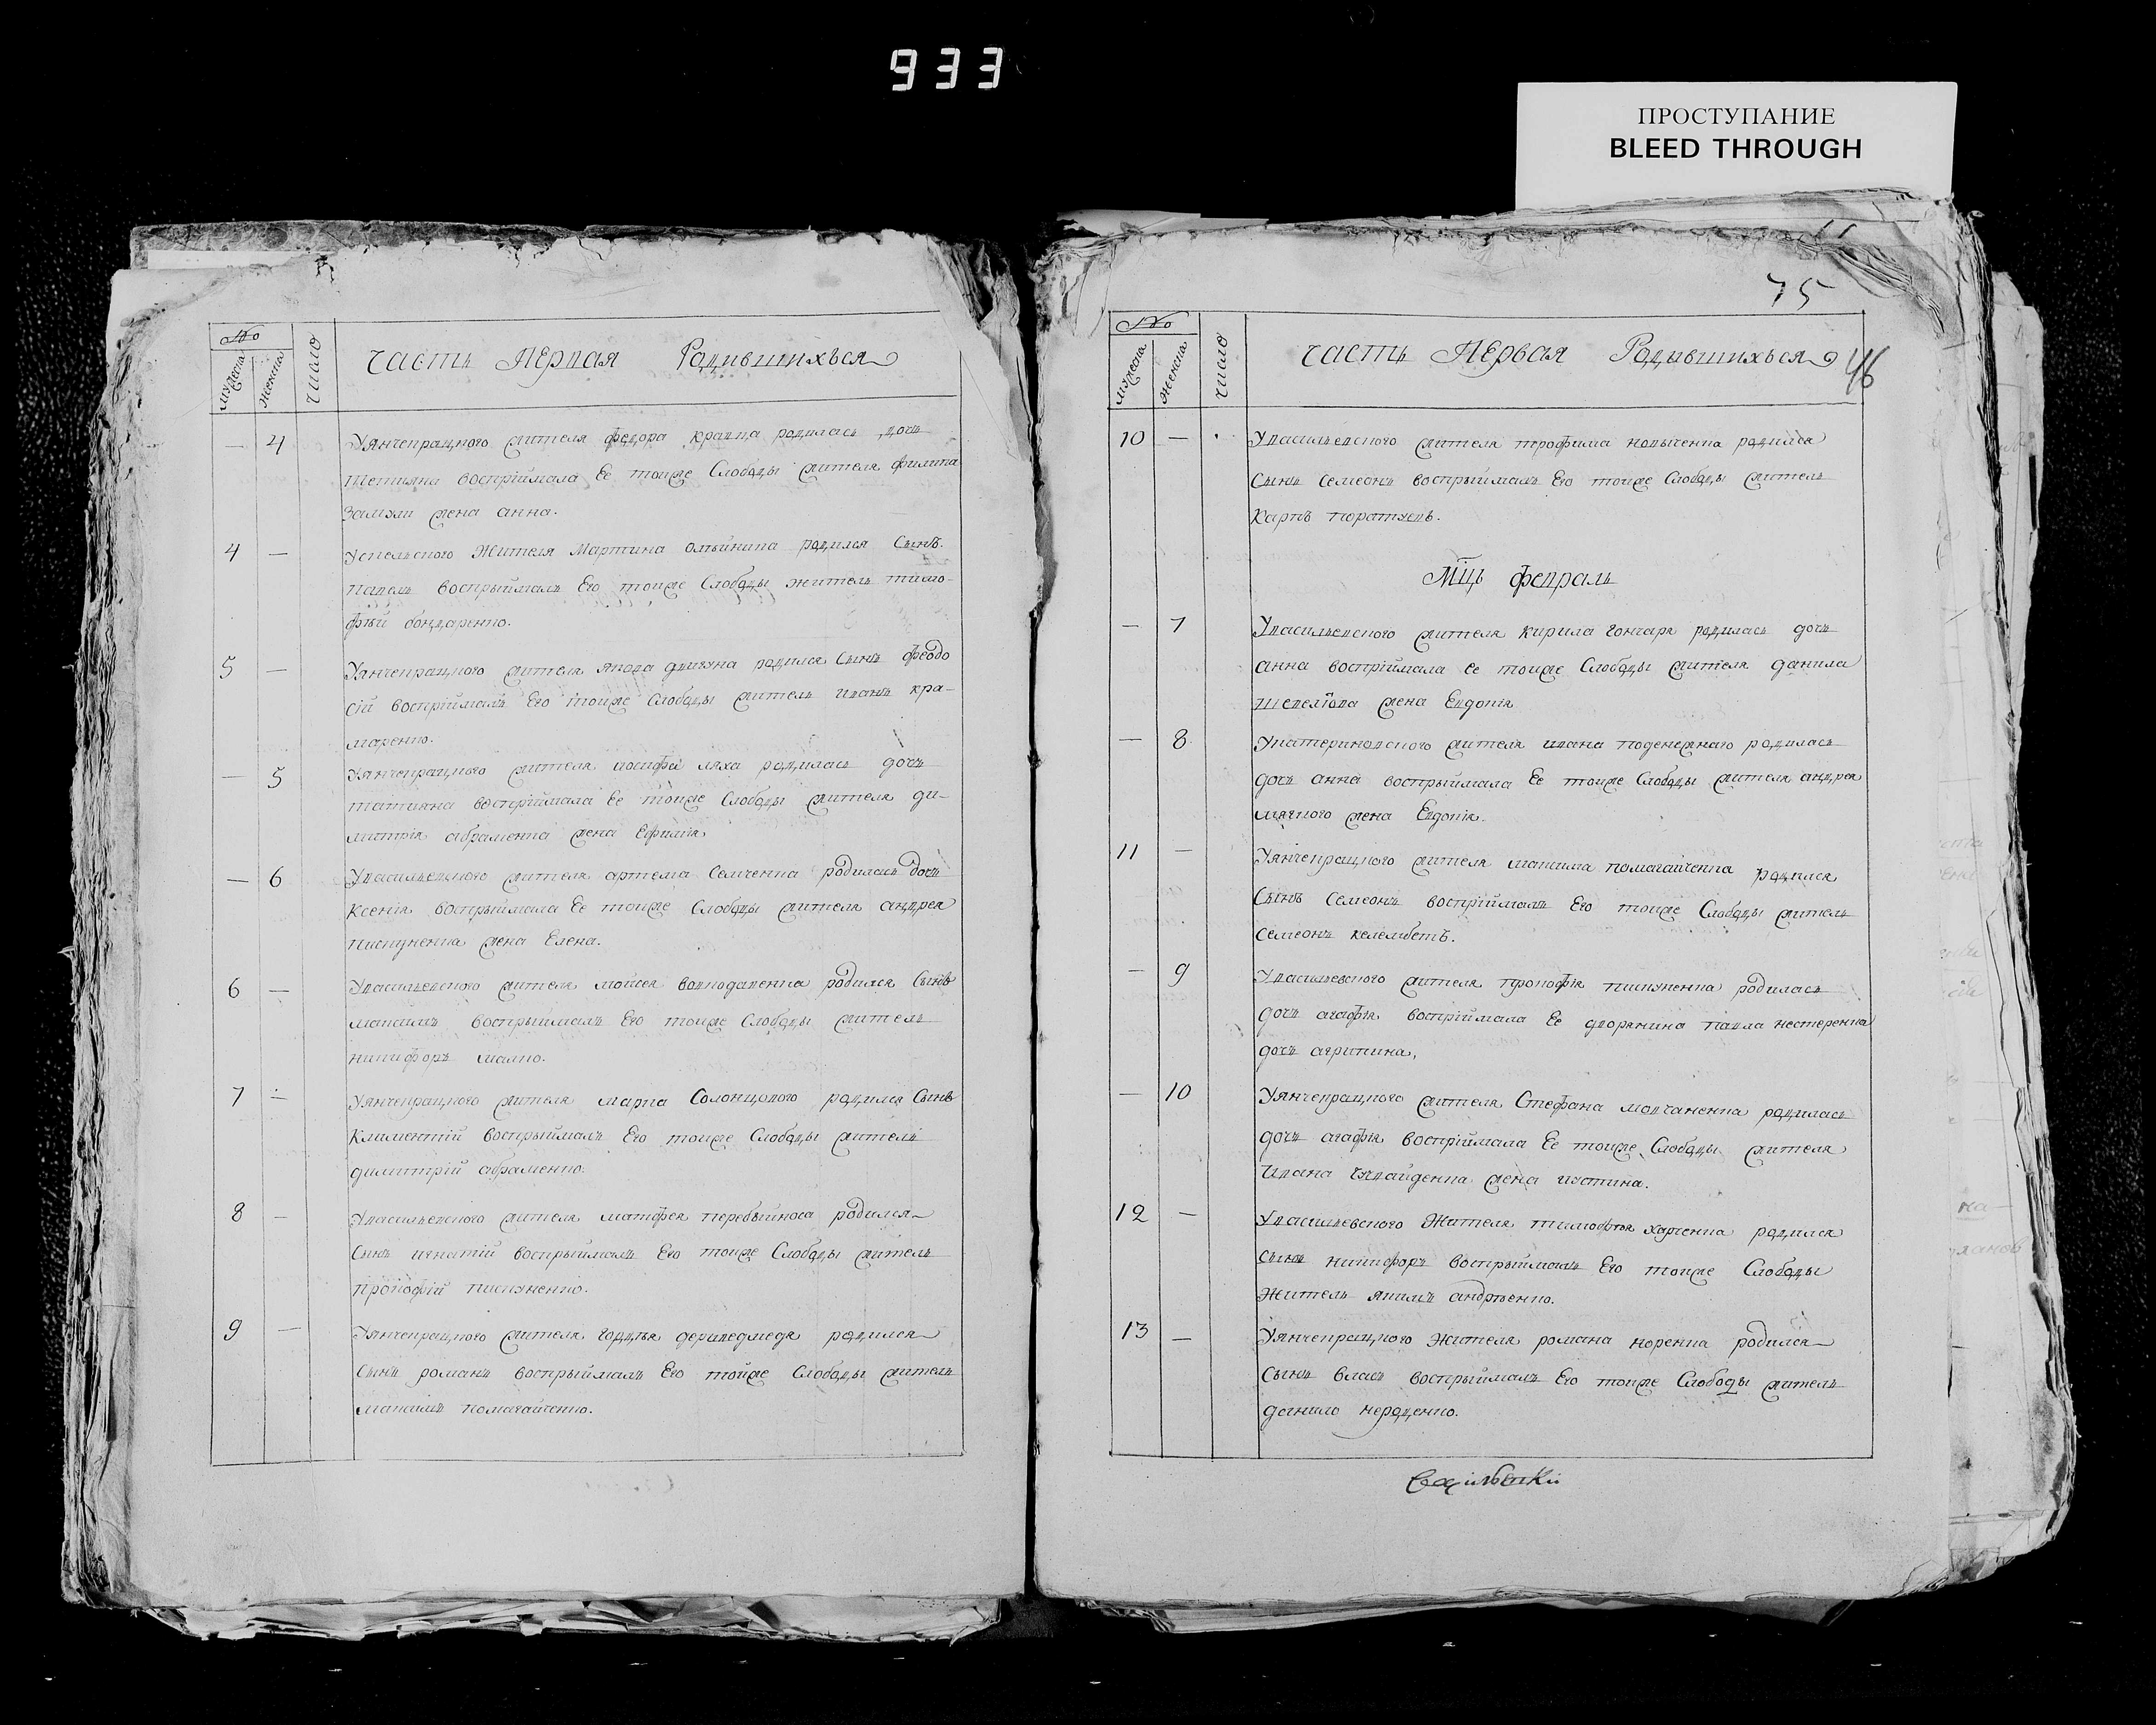 933
ПРОСТУПАНИЕ
BLEED THROUGH
№
мужеска
женска
число
Часть Первая Родившихъся
— 4
Уянчекрацкого жителя федора кравца родилась дочь
воспріймала Ее тоиже Слободы жителя филипа
жена анна.
4 —
жителя Мартина олѣйника родился Сынъ
павелъ воспрыймалъ Его тоиже Слободы житель тимо-
фѣй бондаренко.
5 —
Уянчекрацкого жителя якова дигуна родился Сынъ феодо
сій воспріймалъ Его тоиже Слободы житель иванъ кра-
маренко.
— 5
Уянчекрацкого жителя иосифа ляха родилась дочь
татияна воспріймала Ее тоиже Слободы жителя ди-
митрія абраменка жена Ефимія
— 6
Увасильевского жителя артема Семченка родилась дочь
Ксенія воспрыймала Ее тоиже Слободы жителя андрея
пискуненка жена Елена.
6 —
Увасильевского жителя мойсея вовкодавенка родился Сынъ
макимъ воспрыймалъ Его тоиже Слободы житель
никифоръ малко.
7 —
Уянчекрацкого жителя марка Солонцового родился Сынъ
Климентій воспрыймалъ Его тоиже Слободы житель
димитрій абраменко.
8 —
Увасильевского жителя матфея перебыйноса родился
Сынъ игнатій воспрыймалъ Его тоиже Слободы житель
прокофій пискуненко.
9 —
Уянчекрацкого жителя гордѣя деркведмедя родился
Сынъ романъ воспрыймалъ Его тоиже Слободы житель
макимъ помагайченко.
75
№
мужеска
женска
число
Часть Первая Родывшихъся
46
10 —
Увасильевского жителя трофима новыченка родился
Сынъ Семеонъ воспрыймалъ Его тоиже Слободы житель
Карпъ
Мць февраль
— 7
Увасильевского жителя кирила гончаря родилась дочь
анна воспріймала ее тоиже Слободы жителя данила
жена Евдокія
— 8
Укатериновского жителя ивана поденежнаго родилась
дочь анна воспрыймала Ее тоиже Слободы жителя андрея
мячного жена Евдокія.
11 —
Уянчекрацкого жителя макима помагайченка родился
Сынъ Семеонъ воспріймалъ Его тоиже Слободы житель
Семеонъ келембетъ.
— 9
Увасильевского жителя прокофія пискуненка родилась
дочь агафія воспріймала Ее дворянина павла нестеренка
дочь агрипина,
— 10
Уянчекрацкого жителя Стефана мовчаненка родилась
дочь агафія воспріймала Ее тоиже Слободы жителя
Ивана жена иустина.
12 —
Увасильевского Жителя тимофѣя харченка родился
Сынъ никифоръ воспрыймалъ Его тоиже Слободы
Житель якимъ андрѣенко.
13 —
Уянчекрацкого Жителя романа коренка родился
Сынъ власъ воспрыймалъ Его тоиже Слободы житель
данило нероденко.